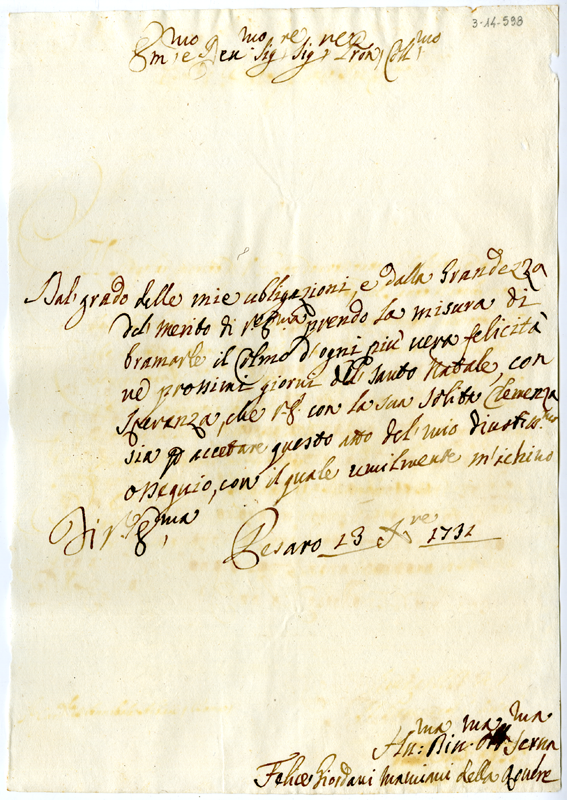 3-14-598
Em.mo e Rev.mo Sig.re Sig.re Pron Col.mo
Dal grado delle mie obligazioni, e dalla Grandezza
del merito di V.Em.za prendo la misura di
bramarle il Colmo d'ogni più vera felicità
ne prossimi giorni del Santo Natale, con
Speranza, che V.E. con la sua solita Clemenza
sia p accettare questo atto del mio divotiss.mo
ossequio, con il quale umilmente m'inchino
Di V.E.ma
Pesaro 13 Xre 1731
Um:ma Div.ma Obb.ma Serva
Felice Giordani Mamiani della Rovere